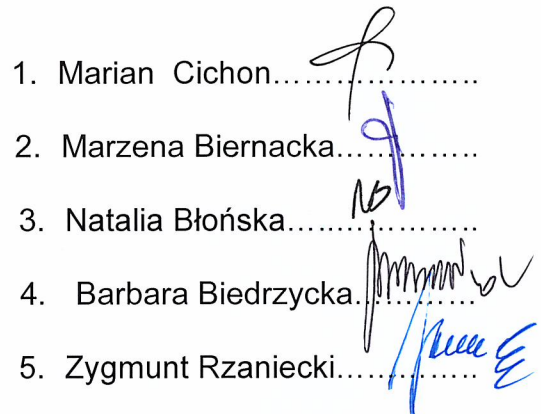 1. Marian Cichon.....................
2. Marzena Biernacka...............
3. Natalia Błońska.....................
4. Barbara Biedrzycka..............
5. Zygmunt Rzaniecki................